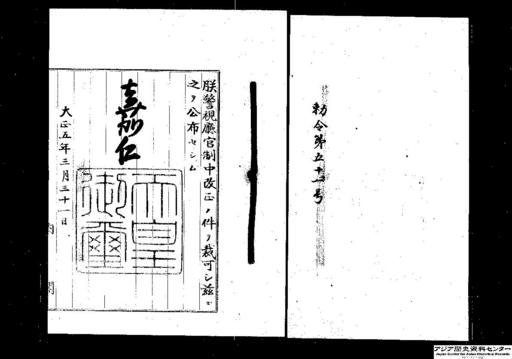 勅令第五十一号
朕警視廳官制中改正ノ件ヲ裁可シ茲ニ
之ヲ公布セシム
嘉仁
天皇
御璽
大正五年三月三十一日
内閣
アジア歴史資料センター
Japan Center for Asian Historical Records